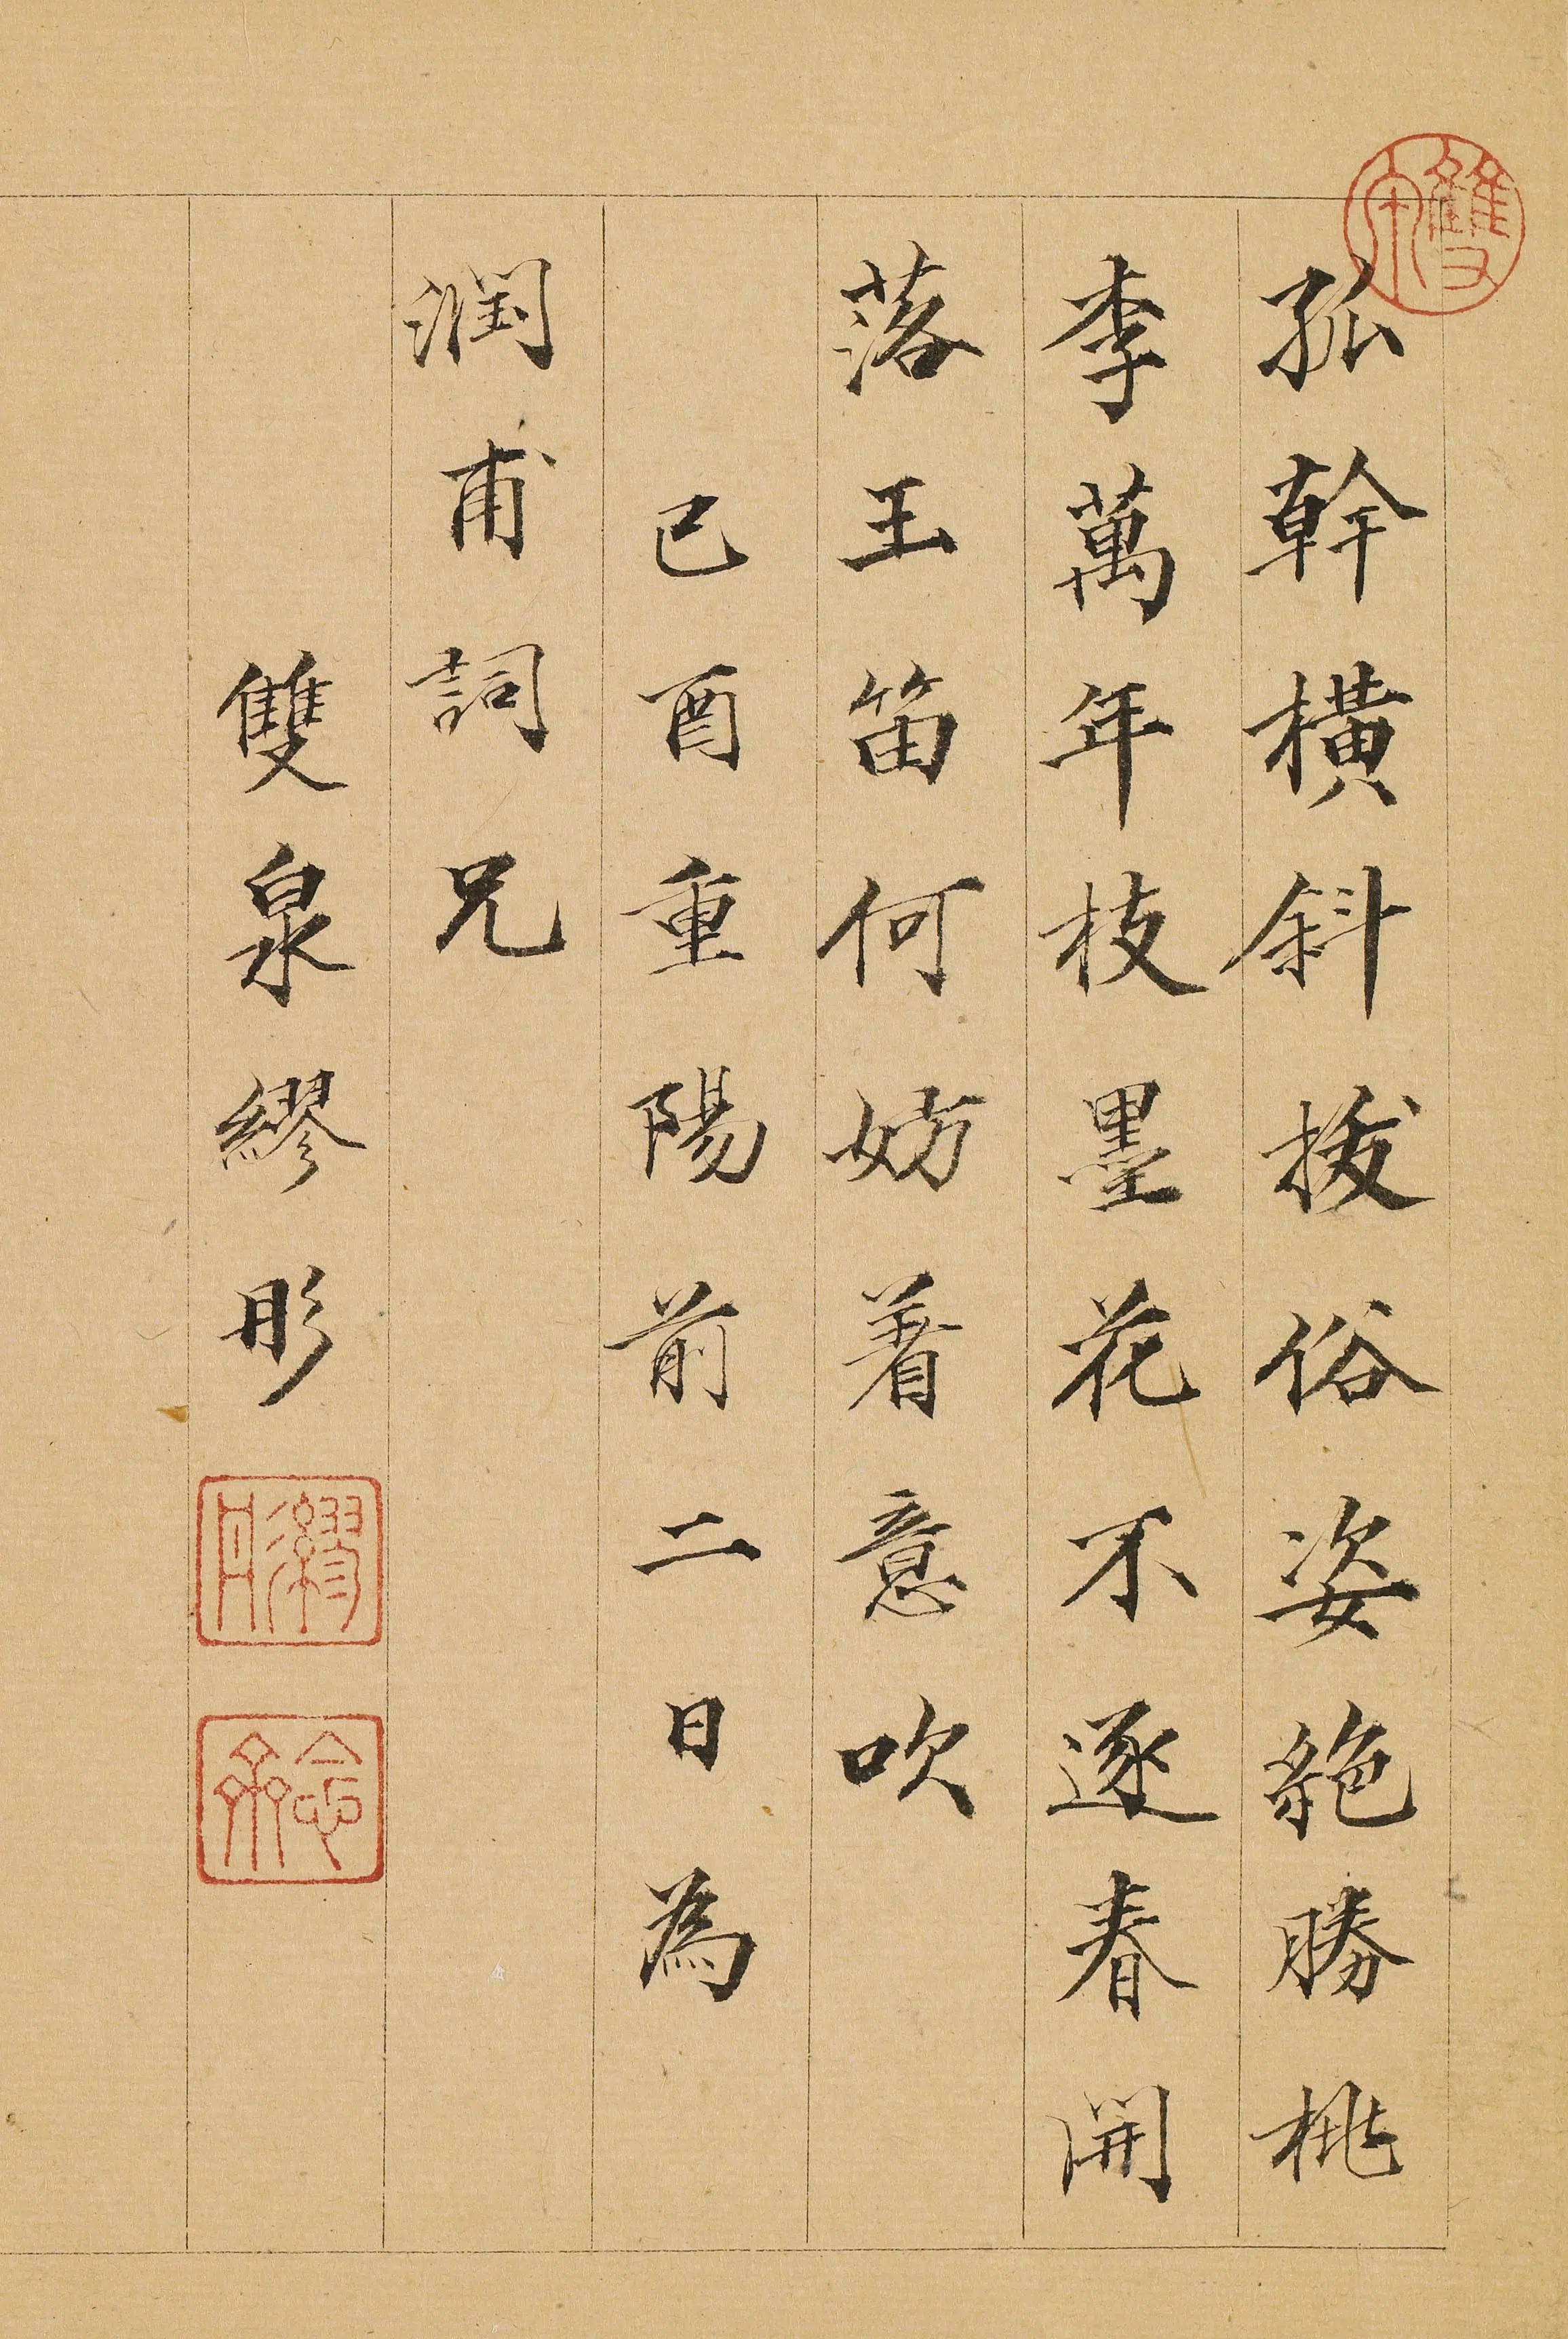 孤幹橫斜拔俗姿絶勝桃
李萬年枝墨花不逐春開
落玉笛何妨着意吹
己酉重陽前二日為
潤甫詞兄
雙泉繆彤
雙泉
繆彤
念齋